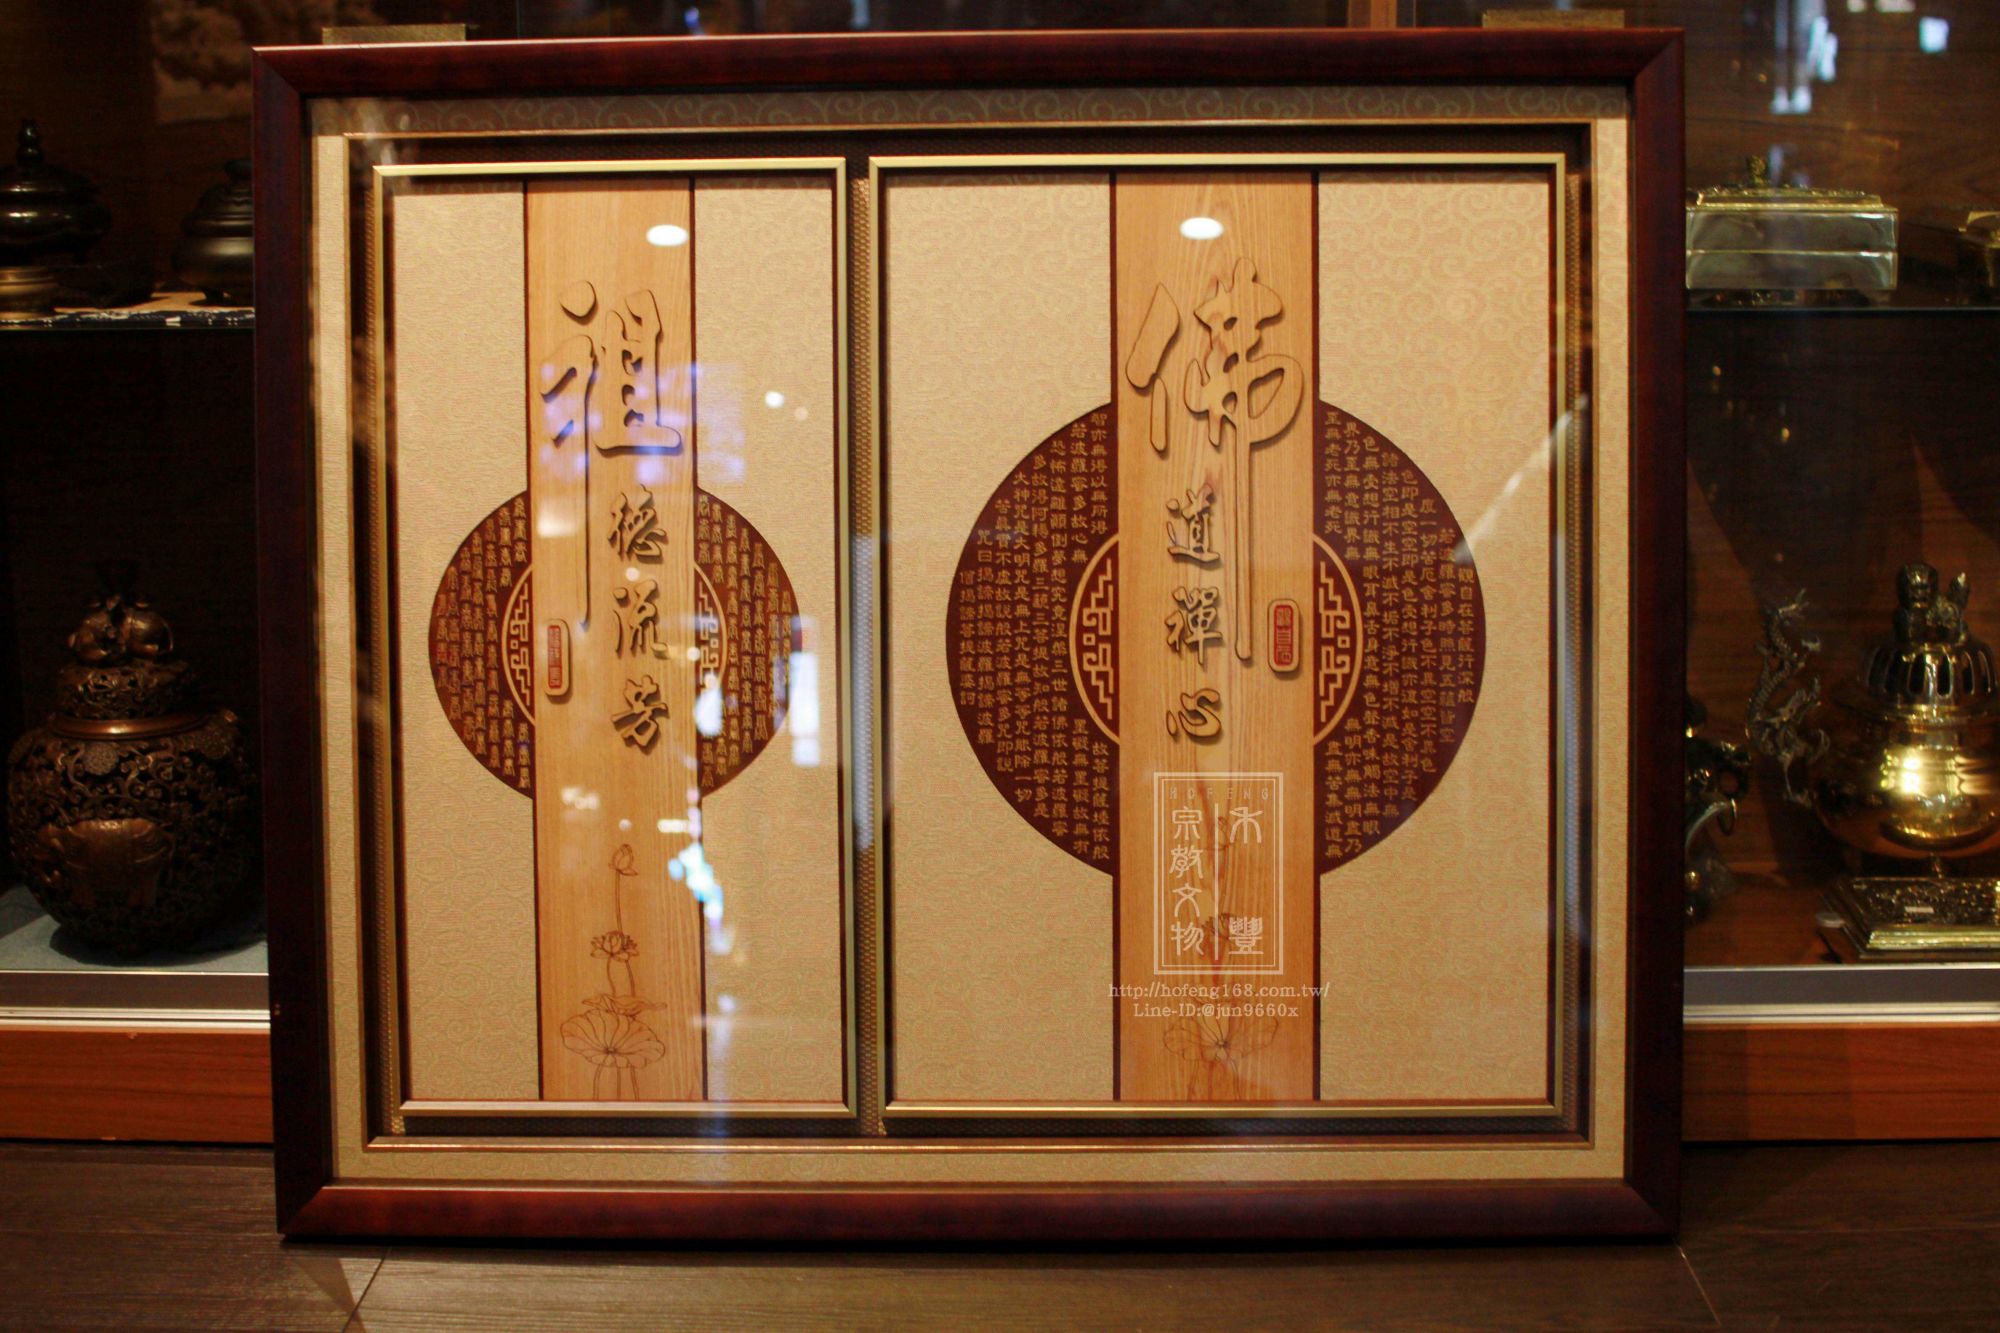 佛
道禪心
祖
德流芳
觀自在菩薩行深般
若波羅蜜多時照見五蘊皆空
度一切苦厄舍利子色不異空空不異色
色即是空空即是色受想行識亦復如是舍利子是
諸法空相不生不滅不垢不淨不增不減是故空中無
色無受想行識無眼耳鼻舌身意無色聲香味觸法無眼
界乃至無意識界無
無明亦無無明盡乃
至無老死亦無老死
盡無苦集滅道無
智亦無得以無所得
故菩提薩埵依般
若波羅蜜多故心無
罣礙無罣礙故無有
恐怖遠離顛倒夢想究竟涅槃三世諸佛依般若波羅蜜
多故得阿耨多羅三藐三菩提故知般若波羅蜜多是
大神咒是大明咒是無上咒是無等等咒能除一切
苦真實不虛故說般若波羅蜜多咒即說
咒曰揭諦揭諦波羅揭諦波羅
僧揭諦菩提薩婆訶
HOFENG
禾豐
宗教文物
http://hofeng168.com.tw/
Line-ID:@jun9660x